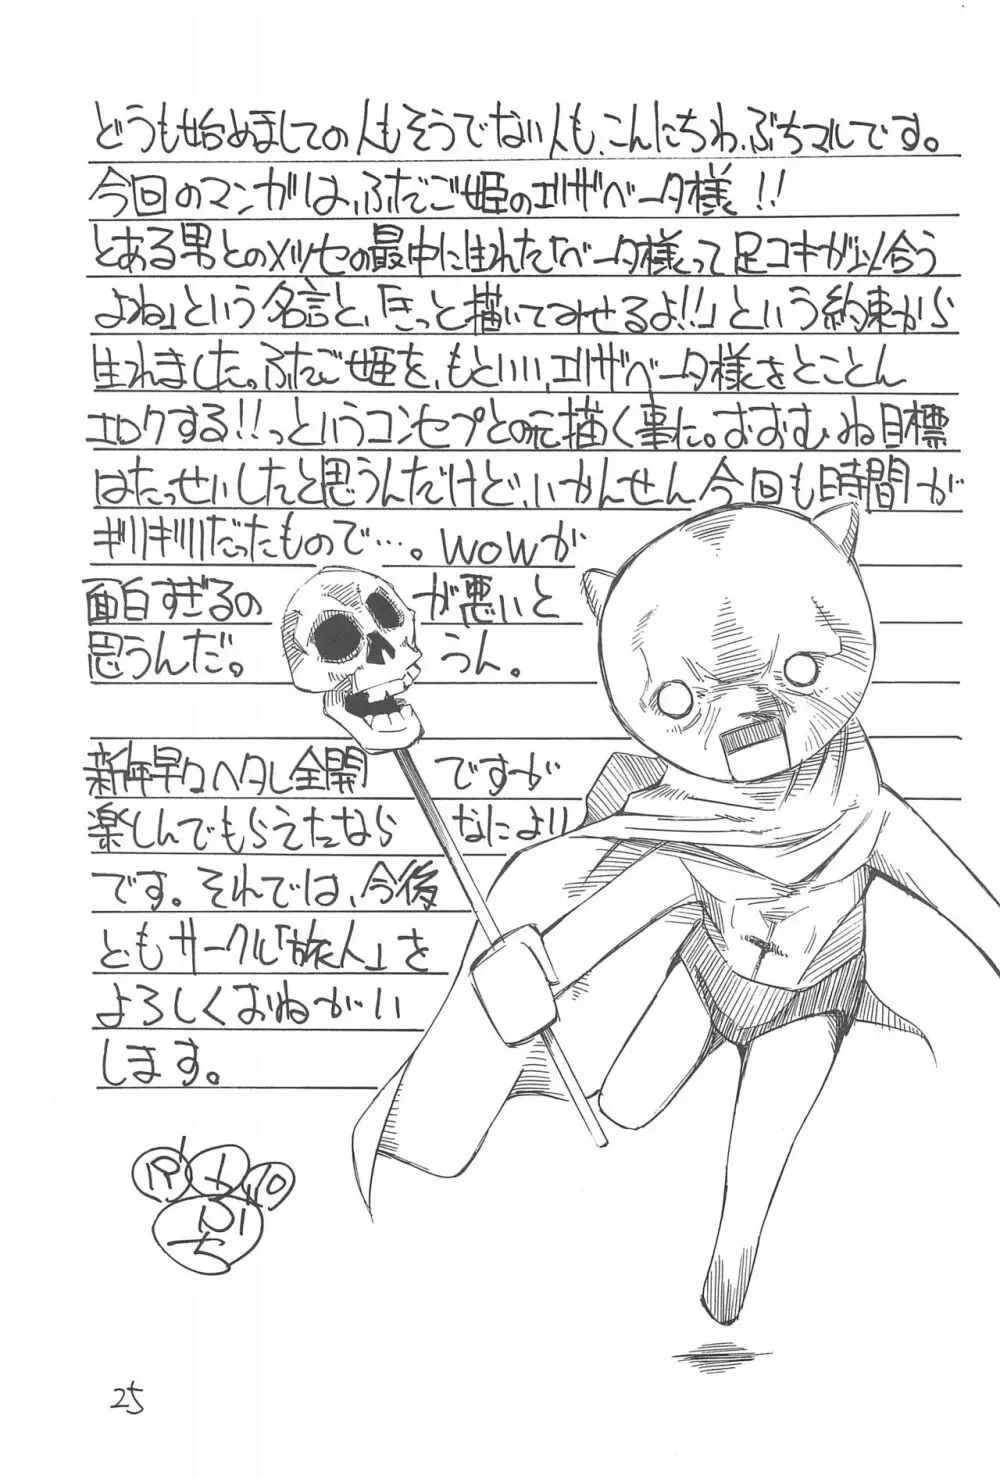 どうも始めましての人もそうでない人も、こんにちわ、ぶちマルです。
今回のマンガは、ふたご姫のエリザベータ様!!
とある男とのメッセの最中に生れた「ベータ様って足コキが似合う
よね」という名言と、「きっと描いてみせるよ!!」という約束から
生れました。ふたご姫を、もといい、エリザベータ様をとことん
エロクする!!っというコンセプとの元描く事に。おおむね目標
はたっせいしたと思うんだけど、いかんせん今回も時間が
ギリギリだったもので…。wowが
面白すぎるの が悪いと
思うんだ。 うん。
新年早々ヘタレ全開 ですが
楽しんでもらえたなら なによりl
です。それでは、今後
ともサークル「旅人」を
よろしくおねがい
します。
ぶ
ち
25